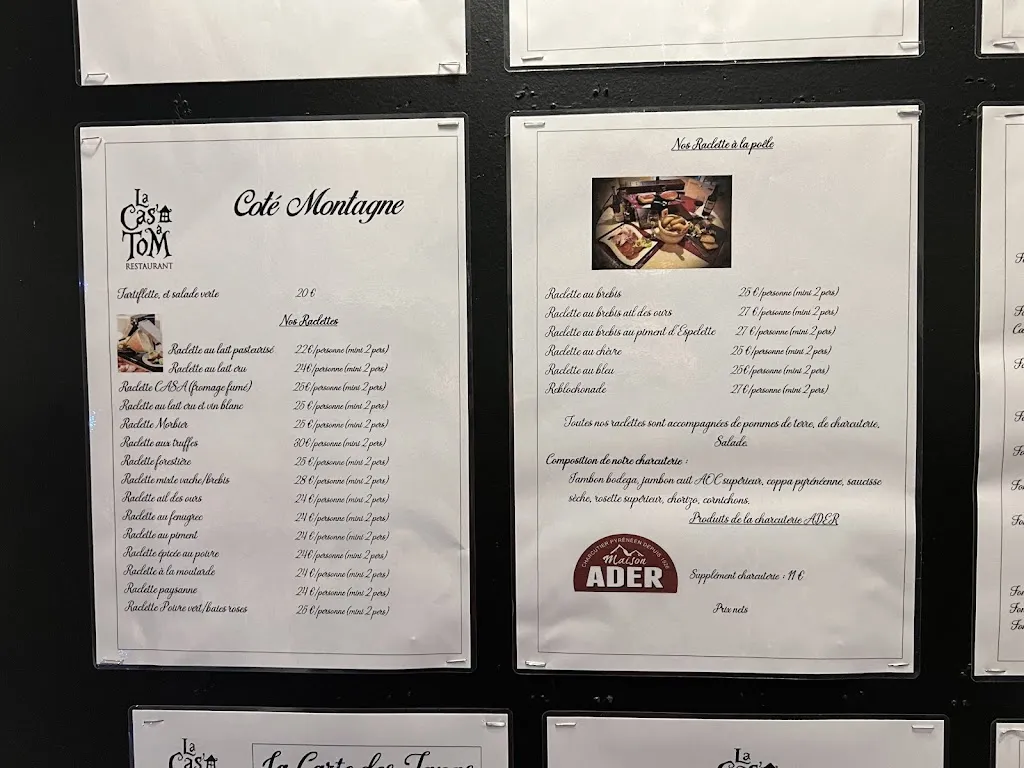 La
Cas'
a
TOM
RESTAURANT
Coté Montagne
Tartiflette, et salade verte 20 €
Nos Raclettes
Raclette au lait pasteurisé 22€/personne (mini 2 pers)
Raclette au lait cru 24€/personne (mini 2 pers)
Raclette CASA (fromage fumé) 25€/personne (mini 2 pers)
Raclette au lait cru et vin blanc 25 €/personne (mini 2 pers)
Raclette Morbier 25 €/personne (mini 2 pers)
Raclette aux truffes 30€/personne (mini 2 pers)
Raclette forestière 25 €/personne (mini 2 pers)
Raclette mixte vache/brebis 28 €/personne (mini 2 pers)
Raclette ail des ours 24 €/personne (mini 2 pers)
Raclette au fenugrec 24 €/personne (mini 2 pers)
Raclette au piment 24 €/personne (mini 2 pers)
Raclette épicée au poivre 24€/personne (mini 2 pers)
Raclette à la moutarde 24 €/personne (mini 2 pers)
Raclette paysanne 24 €/personne (mini 2 pers)
Raclette Poivre vert/baies roses 25 €/personne (mini 2 pers)
Nos Raclette à la poêle
Raclette au brebis 25 €/personne (mini 2 pers)
Raclette au brebis ail des ours 27 €/personne (mini 2 pers)
Raclette au brebis au piment d'Espelette 27 €/personne (mini 2 pers)
Raclette au chèvre 25 €/personne (mini 2 pers)
Raclette au bleu 25€/personne (mini 2 pers)
Reblochonade 27€/personne (mini 2 pers)
Toutes nos raclettes sont accompagnées de pommes de terre, de charcuterie,
Salade.
Composition de notre charcuterie :
Jambon bodega, jambon cuit AOC supérieur, coppa pyrénéenne, saucisse
sèche, rosette supérieur, chorizo, cornichons.
Produits de la charcuterie ADER
CHARCUTIER PYRÉNÉEN DEPUIS
Maison
ADER
Supplément charcuterie : 11 €
Prix nets
La
Cas'
La Carte des
La
Cas'